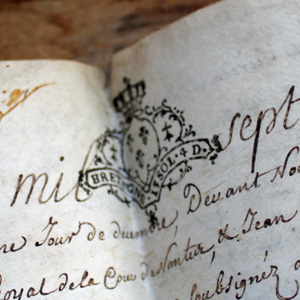 mil sept
BRETAGNE 1 SOL. 4 D.
Jour de decembre, Devant No
Royal de la Cour de Nantes, & Jean
soubsignéz